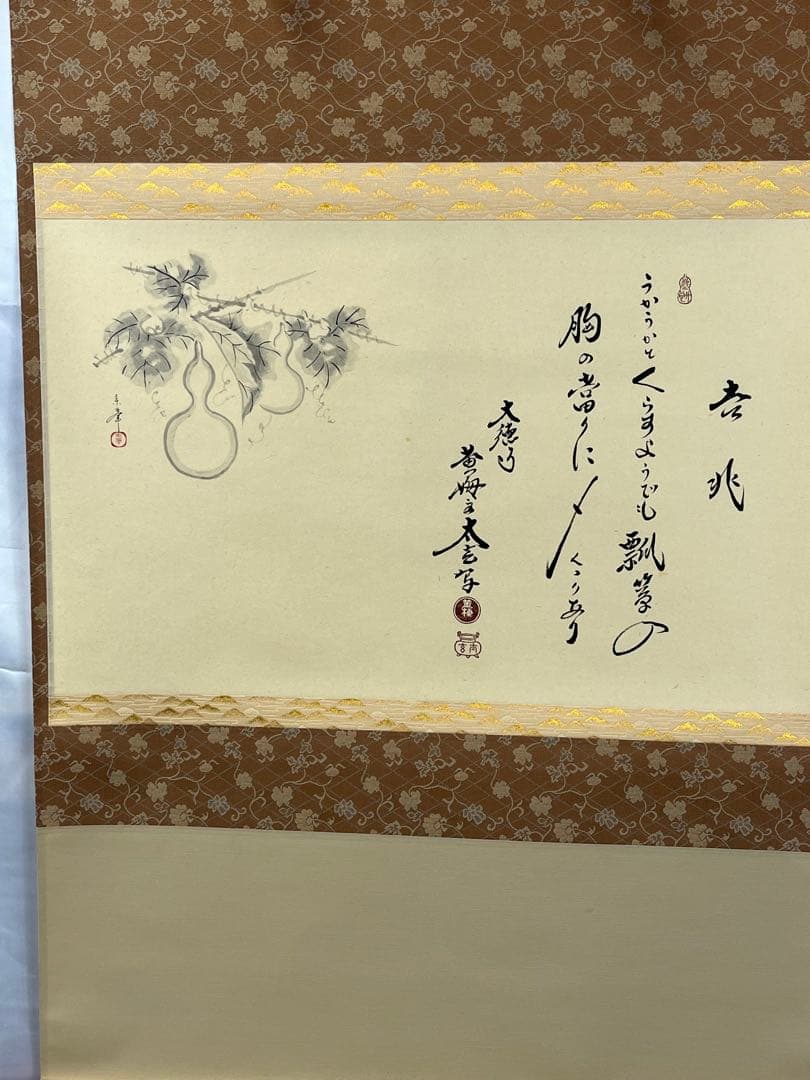 吉兆
うかうかとくらすようでも瓢箪の
胸の當りに〆くくりあり
大徳寺
黄梅主太玄写
黄梅
太玄